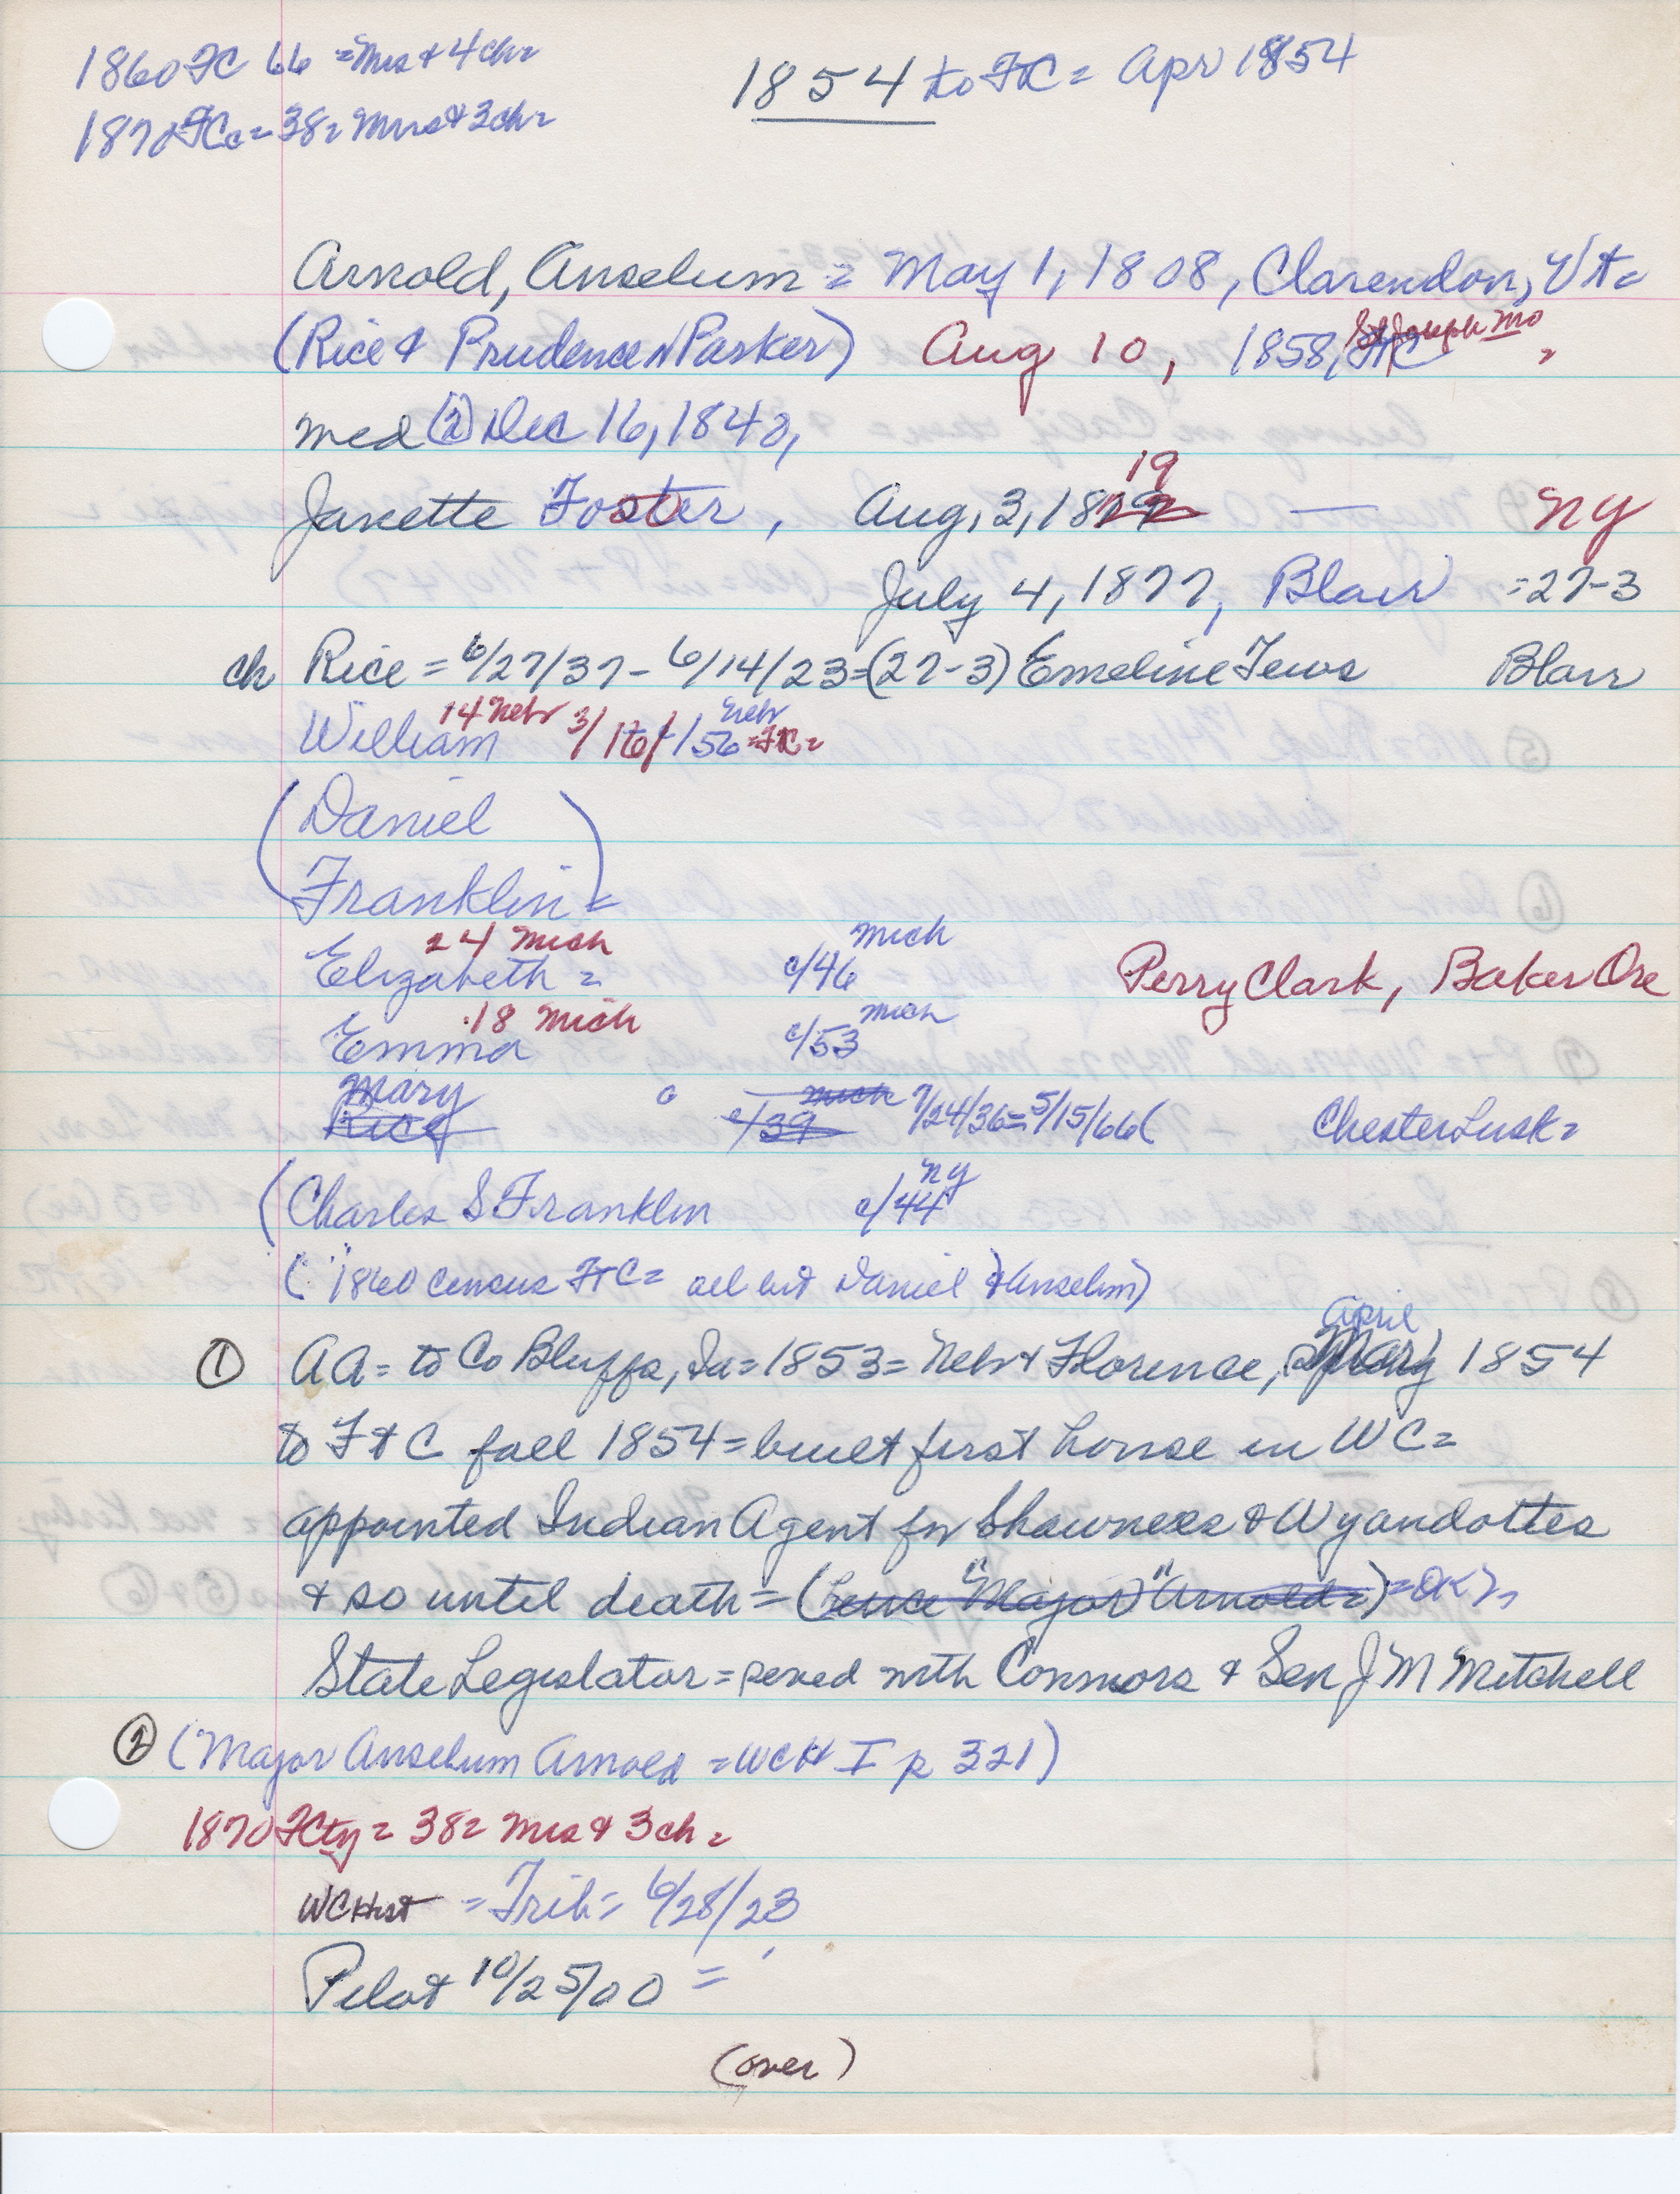 1860 FC 66 = Mrs & 4 ch =
1854 to FtC = Apr 1854
1870 FCo = 38 = Mrs & 3 ch =
Arnold, Anselum = May 1, 1808, Clarendon, Vt =
(Rice & Prudence N Parker) Aug 10, 1858, FtC St Joseph Mo =
med (2) Dec 16, 1840,
19
Janette Foster, Aug, 3, 1822 — NY
July 4, 1877, Blair = 27-3
ch Rice = 6/27/37 - 6/14/23 = (27-3) Emeline Tews Blair
William 14 Nebr 3/16/56 Nebr = FtC =
(Daniel
Franklin) =
24 Mich mich
Elizabeth = c/46 Perry Clark, Baker Ore
18 Mich mich
Emma c/53
Mary mich 7/24/36 = 5/15/66 ( Chester Lusk =
Rice c/39
ny
(Charles S Franklin c/44
("1860 census FtC = all but Daniel & Anselm)
april
① AA = to Co Bluffs, Ia = 1853 = Nebr & Florence, 1854
to Ft C fall 1854 = built first house in WC =
appointed Indian Agent for Shawnees & Wyandottes
& so until death = (hence "Major" Arnold =) = OK
State Legislator = served with Connors & Sen J M Mitchell
② (Major Anselum Arnold = WCH I p 321)
1870 FCty = 38 = Mrs & 3 ch =
WCHist = Trib = 6/28/23
Pilot 10/25/00 =
(over)